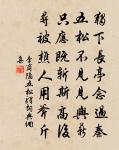 獨下長亭念過秦
五松不見見輿薪
只應既斬斯高後
尋被樵人用斧斤
李商隱五松驛詞典網